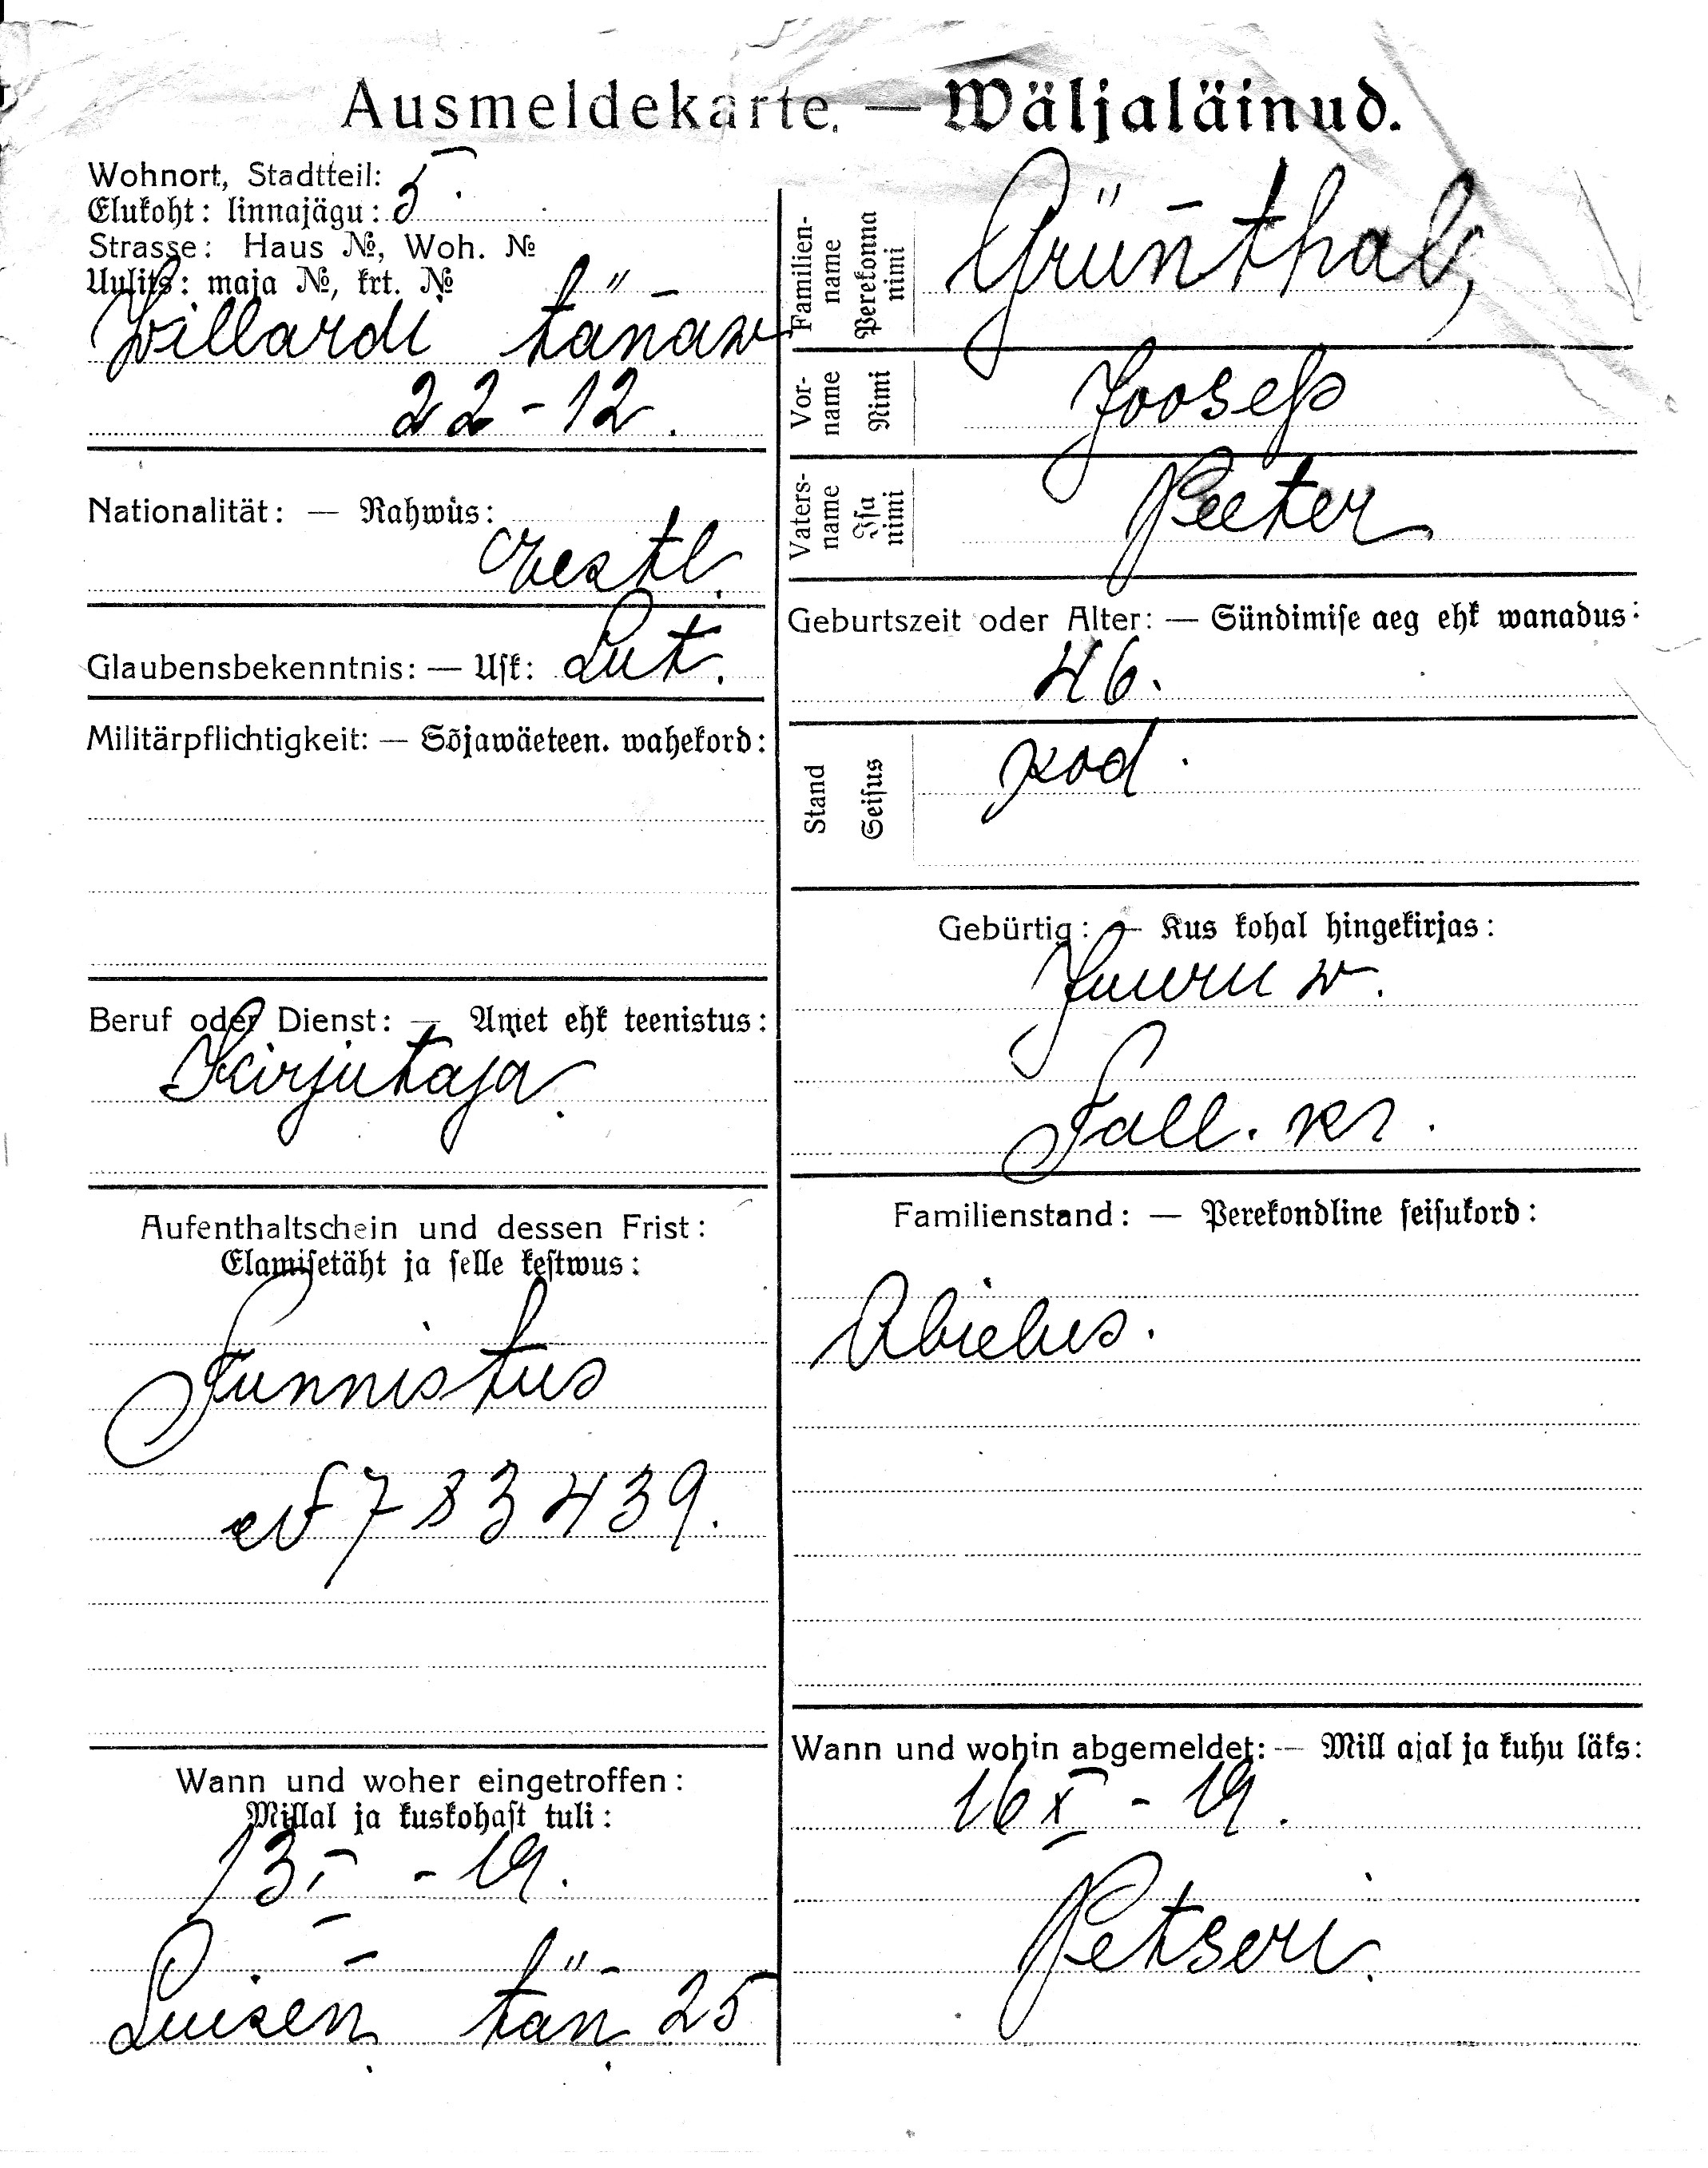 Ausmeldekarte. — Wäljaläinud.
Wohnort, Stadtteil:
Elukoht: linnajägu: 5.
Strasse: Haus №, Woh. №
Uulits: maja №, krt. №
Willardi tänaw
22-12.
Nationalität: — Rahwus:
eestl.
Glaubensbekenntnis: — Usk: Lut.
Militärpflichtigkeit: — Sõjawäeteen. wahekord:
Beruf oder Dienst: — Amet ehk teenistus:
Kirjutaja.
Aufenthaltschein und dessen Frist:
Elamisetäht ja selle kestwus:
Tunnistus
№ 783439.
Wann und woher eingetroffen:
Millal ja kuskohast tuli:
13 I - 19.
Luisen tän 25
Familien-name Perekonna nimi Grünthal,
Vor-name Nimi Joosep
Vaters-name Isa nimi Peeter
Geburtszeit oder Alter: — Sündimise aeg ehk wanadus:
46.
Stand Seisus kod.
Gebürtig: — Kus kohal hingekirjas:
Juuru w.
Tall. kr.
Familienstand: — Perekondline seisukord:
Abielus.
Wann und wohin abgemeldet: — Mill ajal ja kuhu läks:
16 X - 19.
Petseri.